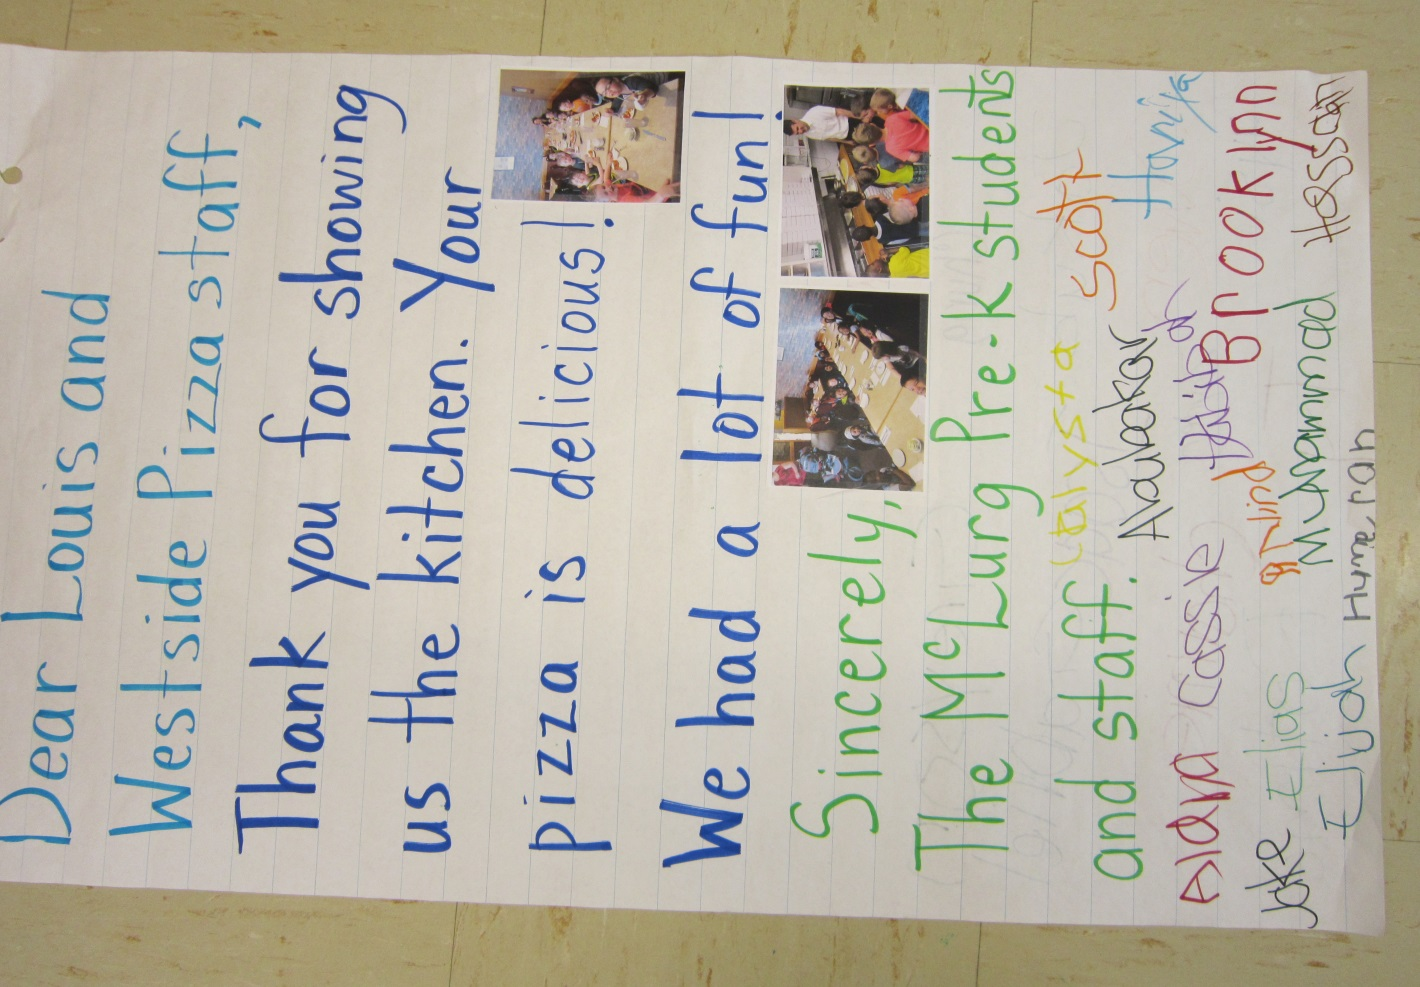 Dear Louis and
Westside Pizza staff,
Thank you for showing
us the kitchen. Your
pizza is delicious!
We had a lot of fun!
Sincerely,
The McLurg Pre-K students
and staff.
Calysta
Scott
Alana
Cassie
Abubakar
Haniya
Jake
Elias
Brooklynn
Elijah
Muhammad
Hassan